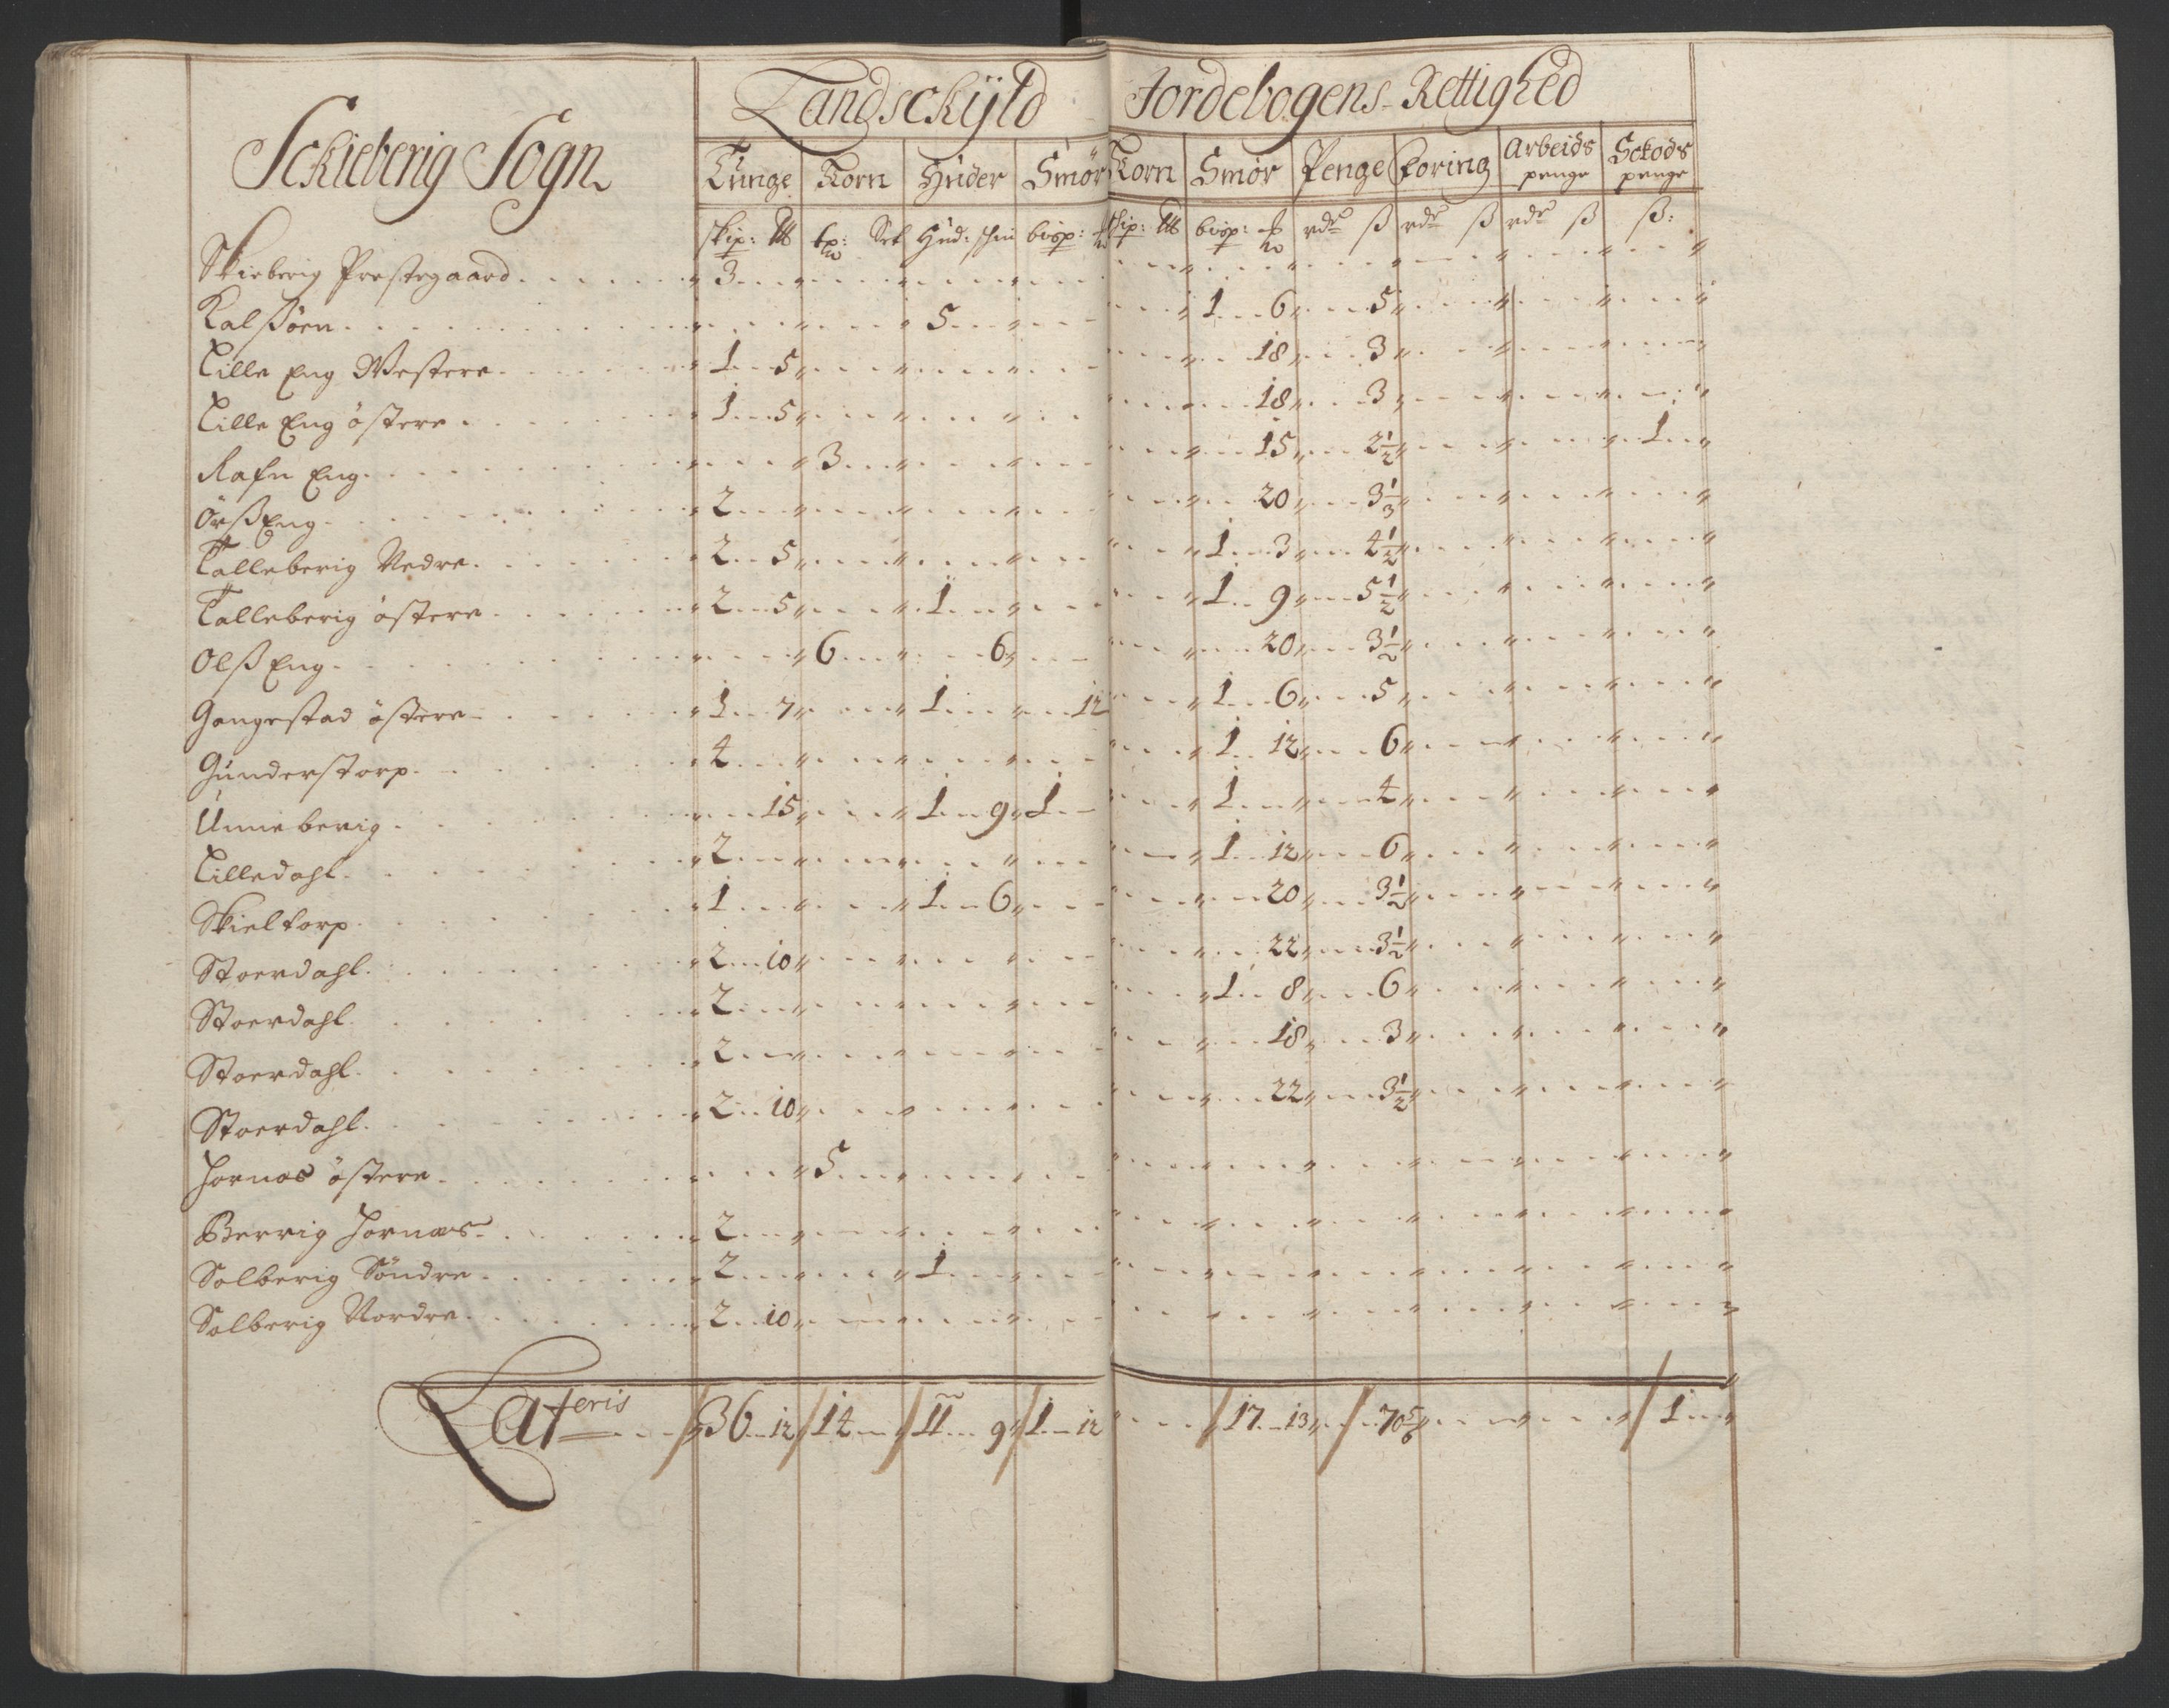 Sckieberig Sogn
Landsckÿld Jordebogens Rettighed
Tunge Korn Huder Smör Korn Smör Penge Foring Arbeids penge Sckods penge
skip: Hud: skin bisp: skip: bisp: rdr ß rdr ß rdr ß ß:
Skieberig Prestegaard 3
Kalßöen 5 1 6 5
Lille Eng Westere 1 5 18 3
Lille Eng östere 1 5 18 3
Rafn Eng 3 15 2½ 1
Örß Eng 2 20 3⅓
Talleberig Nedre 2 5 1 3 4½
Talleberig östere 2 5 1 1 9 5½
Olß Eng 6 6 20 3½
Gangestad östere 1 7 1 12 1 6 5
Gunderstorp 4 1 12 6
Unneberig 15 1 9 1 1 4
Lilledahl 2 1 12 6
Skieltorp 1 1 6 20 3½
Stoerdahl 2 10 22 3½
Stoerdahl 2 1 8 6
Stoerdahl 2 18 3
Stoerdahl 2 10 22 3½
Hornæs östere 5
Berrig Hornæs 2
Solberig Söndre 2 1
Solberig Nordre 2 10
Lateris 36 12 14 11 9 1 12 17 13 70⅚ 1